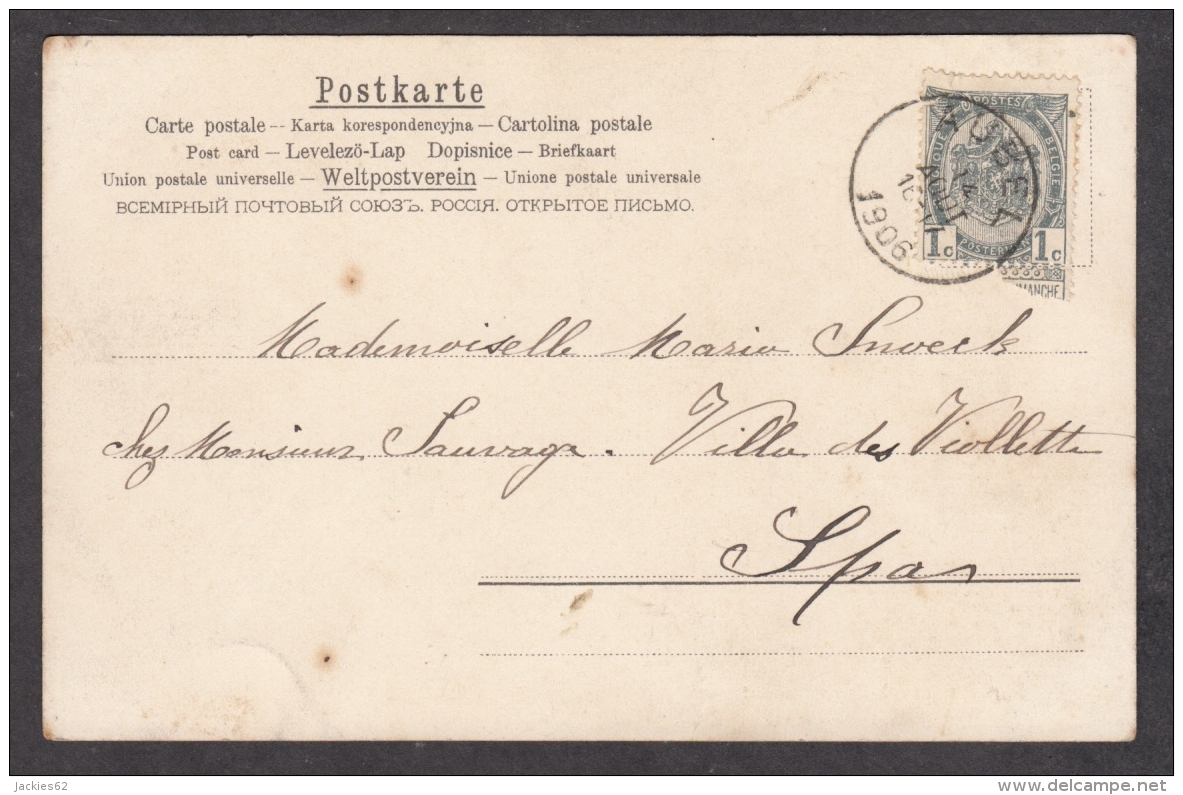 Postkarte
Carte postale -- Karta korespondencyjna — Cartolina postale
Post card — Levelezö-Lap Dopisnice — Briefkaart
Union postale universelle — Weltpostverein — Unione postale universale
ВСЕМІРНЫЙ ПОЧТОВЫЙ СОЮЗЪ. РОССІЯ. ОТКРЫТОЕ ПИСЬМО.
POSTES
BELGIE
14
AOUT
1906
1c 1c
POSTERIJEN
Mademoiselle Maria Snoeck
chez Monsieur Sauvage. Villa des Viollette
Spa
jackies62
www.delcampe.net